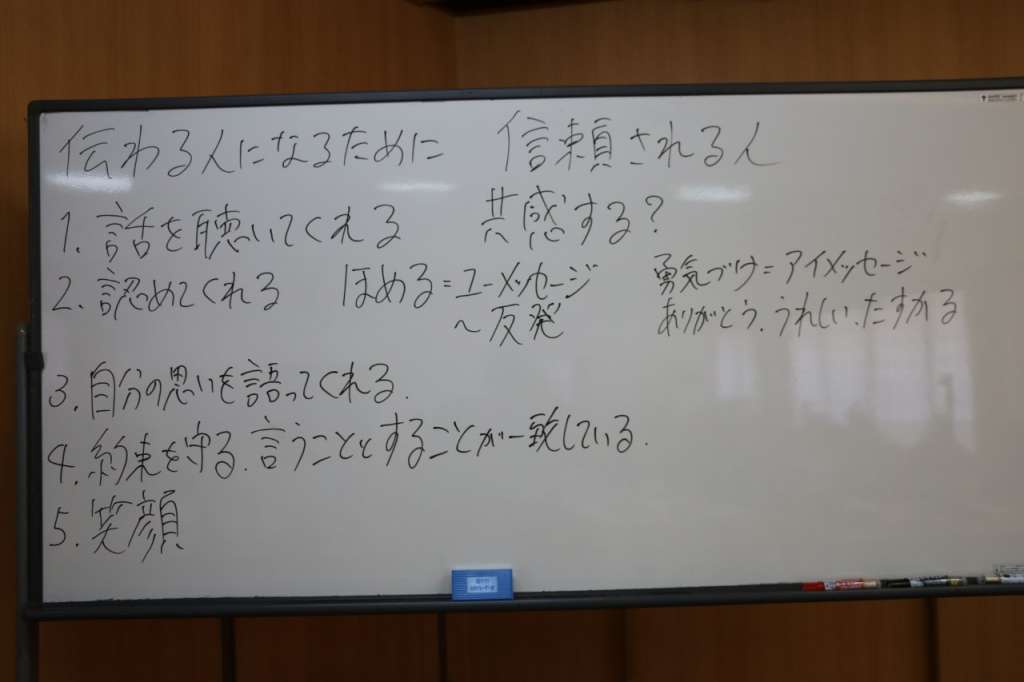 伝わる人になるために 信頼される人
1. 話を聴いてくれる 共感する?
2. 認めてくれる ほめる=ユーメッセージ 勇気づけ=アイメッセージ
～反発 ありがとう、うれしい、たすかる
3. 自分の思いを語ってくれる.
4. 約束を守る、言うこととすることが一致している.
5. 笑顔